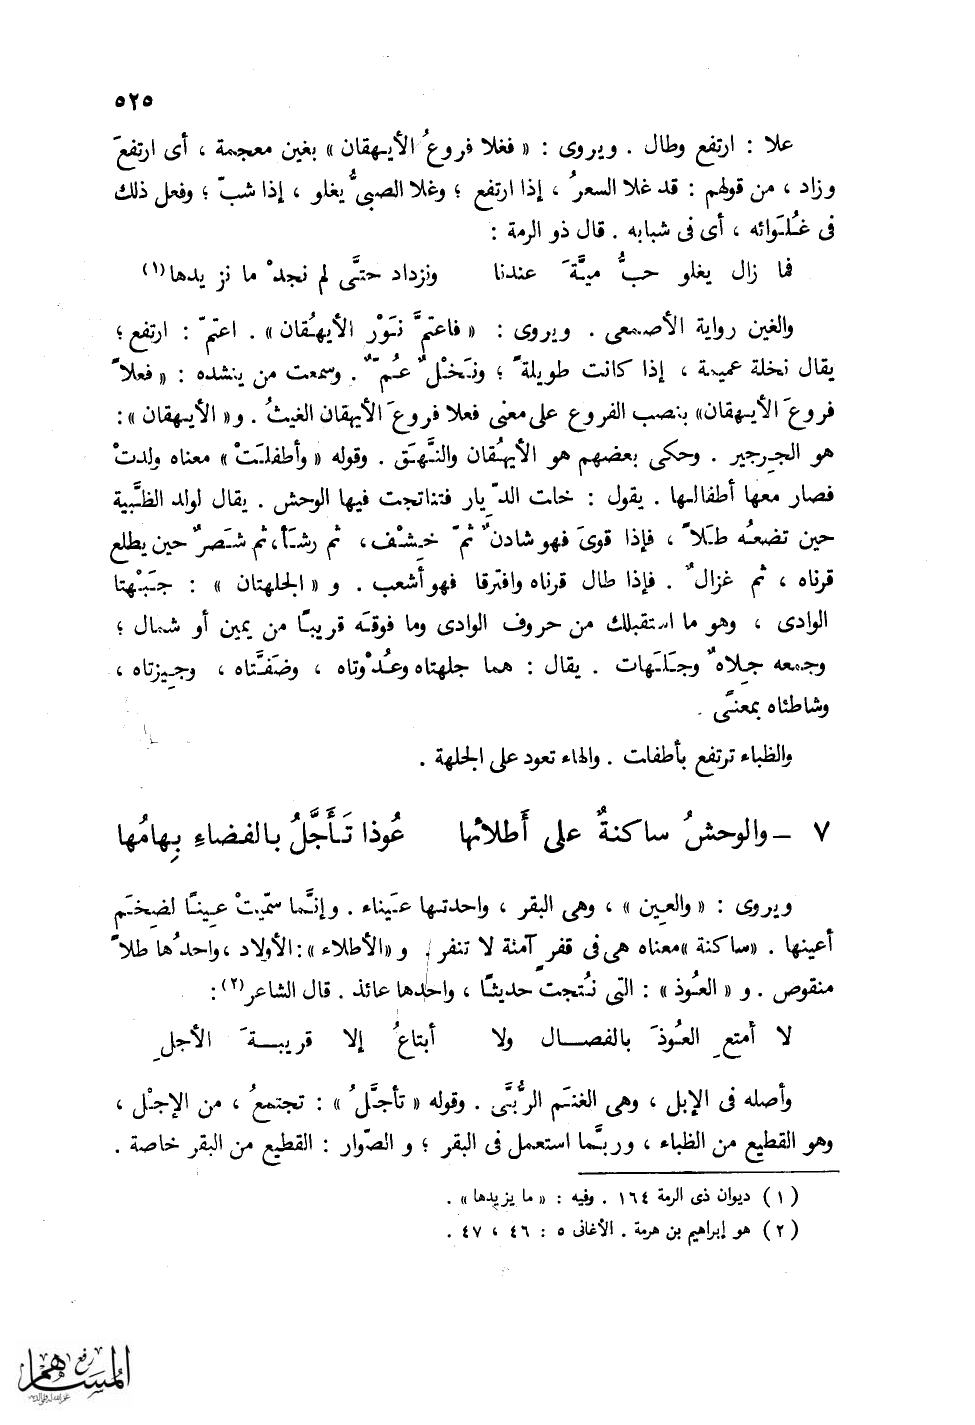 ٥٢٥
علا : ارتفع وطال . ويروى : « فغلا فروعُ الأيهقان » بغين معجمة ، أى ارتفعَ
وزاد ، من قولهم : قد غلا السعرُ ، إذا ارتفع ؛ وغلا الصبىُّ يغلو ، إذا شبّ ؛ وفعل ذلك
فى غُلَوائه ، أى فى شبابه . قال ذو الرمة :
فما زال يغلو حبُّ ميّةَ عندنا ونزداد حتَّى لم نجدْ ما نزيدها(١)
والغين رواية الأصمعى . ويروى : « فاعتمَّ نَوْر الأيهُقان » . اعتمّ : ارتفع ؛
يقال نخلة عميمة ، إذا كانت طويلةً ؛ ونَخْلٌ عُمٌّ . وسمعت من ينشده : « فعلاً
فروعَ الأيهقان » بنصب الفروع على معنى فعلا فروعَ الأيهقان الغيثُ . و« الأيهقان » :
هو الجِرجير . وحكى بعضهم هو الأيهُقان والنَّهَق . وقوله « وأطفلَتْ » معناه ولدتْ
فصار معها أطفالها . يقول : خلت الدِّيار فتناتجت فيها الوحش . يقال لولد الظَّبية
حين تضعُه طَلاً ، فإذا قوىَ فهو شادنٌ ثمّ خِشْف ، ثم رشَأ ، ثم شَصَرٌ حين يطلع
قرناه ، ثم غزالٌ . فإذا طال قرناه وافترقا فهو أَشعب . و « الجلهتان » : جَبْهتا
الوادى ، وهو ما استقبلك من حروف الوادى وما فوقَه قريبًا من يمين أو شمال ؛
وجمعه جِلاهٌ وجَلَهات . يقال : هما جلهتاه وعُدْوتاه ، وضَفَّتاه ، وجِيزتاه ،
وشاطئاه بمعنًى .
والظباء ترتفع بأطفلت . والهاء تعود على الجلهة .
٧ – والوحشُ ساكنةٌ على أَطلائها عُوذا تَأَجَّلُ بالفضاءِ بِهامُها
ويروى : « والعِين » ، وهى البقر ، واحدتها عَيناء . وإنَّما سمِّيتْ عِينًا لضِخَم
أعينها . « ساكنة » معناه هى فى قفرٍ آمنة لا تنفر . و « الأطلاء » : الأولاد ، واحدُها طلاً
منقوص . و « العُوذ » : التى نُتجت حديثًا ، واحدها عائذ . قال الشاعر(٢) :
لا أمتعِ العُوذَ بالفصال ولا أبتاعُ إلا قريبةَ الأجلِ
وأصله فى الإبل ، وهى الغنَم الرُّبَّى . وقوله « تأجَّلُ » : تجتمعُ ، من الإجْل ،
وهو القطيع من الظباء ، وربَّما استعمل فى البقر ؛ و الصّوار : القطيع من البقر خاصة .
(١) ديوان ذى الرمة ١٦٤ . وفيه : « ما يزيدها » .
(٢) هو إبراهيم بن هرمة . الأغانى ٥ : ٤٦ ، ٤٧ .
رفع
المساهم